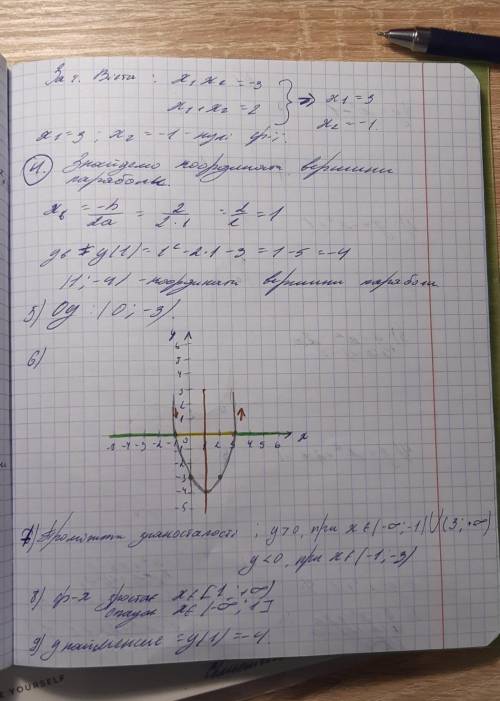 За т. Вієта : x₁ x₂ = -3
x₁ + x₂ = 2
} ⇒ x₁ = 3
x₂ = -1.
x₁ = 3 ; x₂ = -1 - нулі ф-ії.
4. Знайдемо координати вершини
параболи.
xв = -b/2a = 2/2·1 = 2/2 = 1
yв = y(1) = 1² - 2·1 - 3 = 1 - 5 = -4
(1; -4) - координати вершини параболи
5) Oy : (0; -3).
6)
y
6
5
4
3
2
1
-5 -4 -3 -2 -1 1 2 3 4 5 6 x
-1
-2
-3
-4
-5
7) Проміжки знакосталості ; y > 0, при x ∈ (-∞; -1) ∪ (3; +∞)
y < 0, при x ∈ (-1, -3)
8) ф-я зростає x ∈ [1, +∞)
спадає x ∈ (-∞; 1]
9) y найменше = y(1) = -4.
E YOURSELF